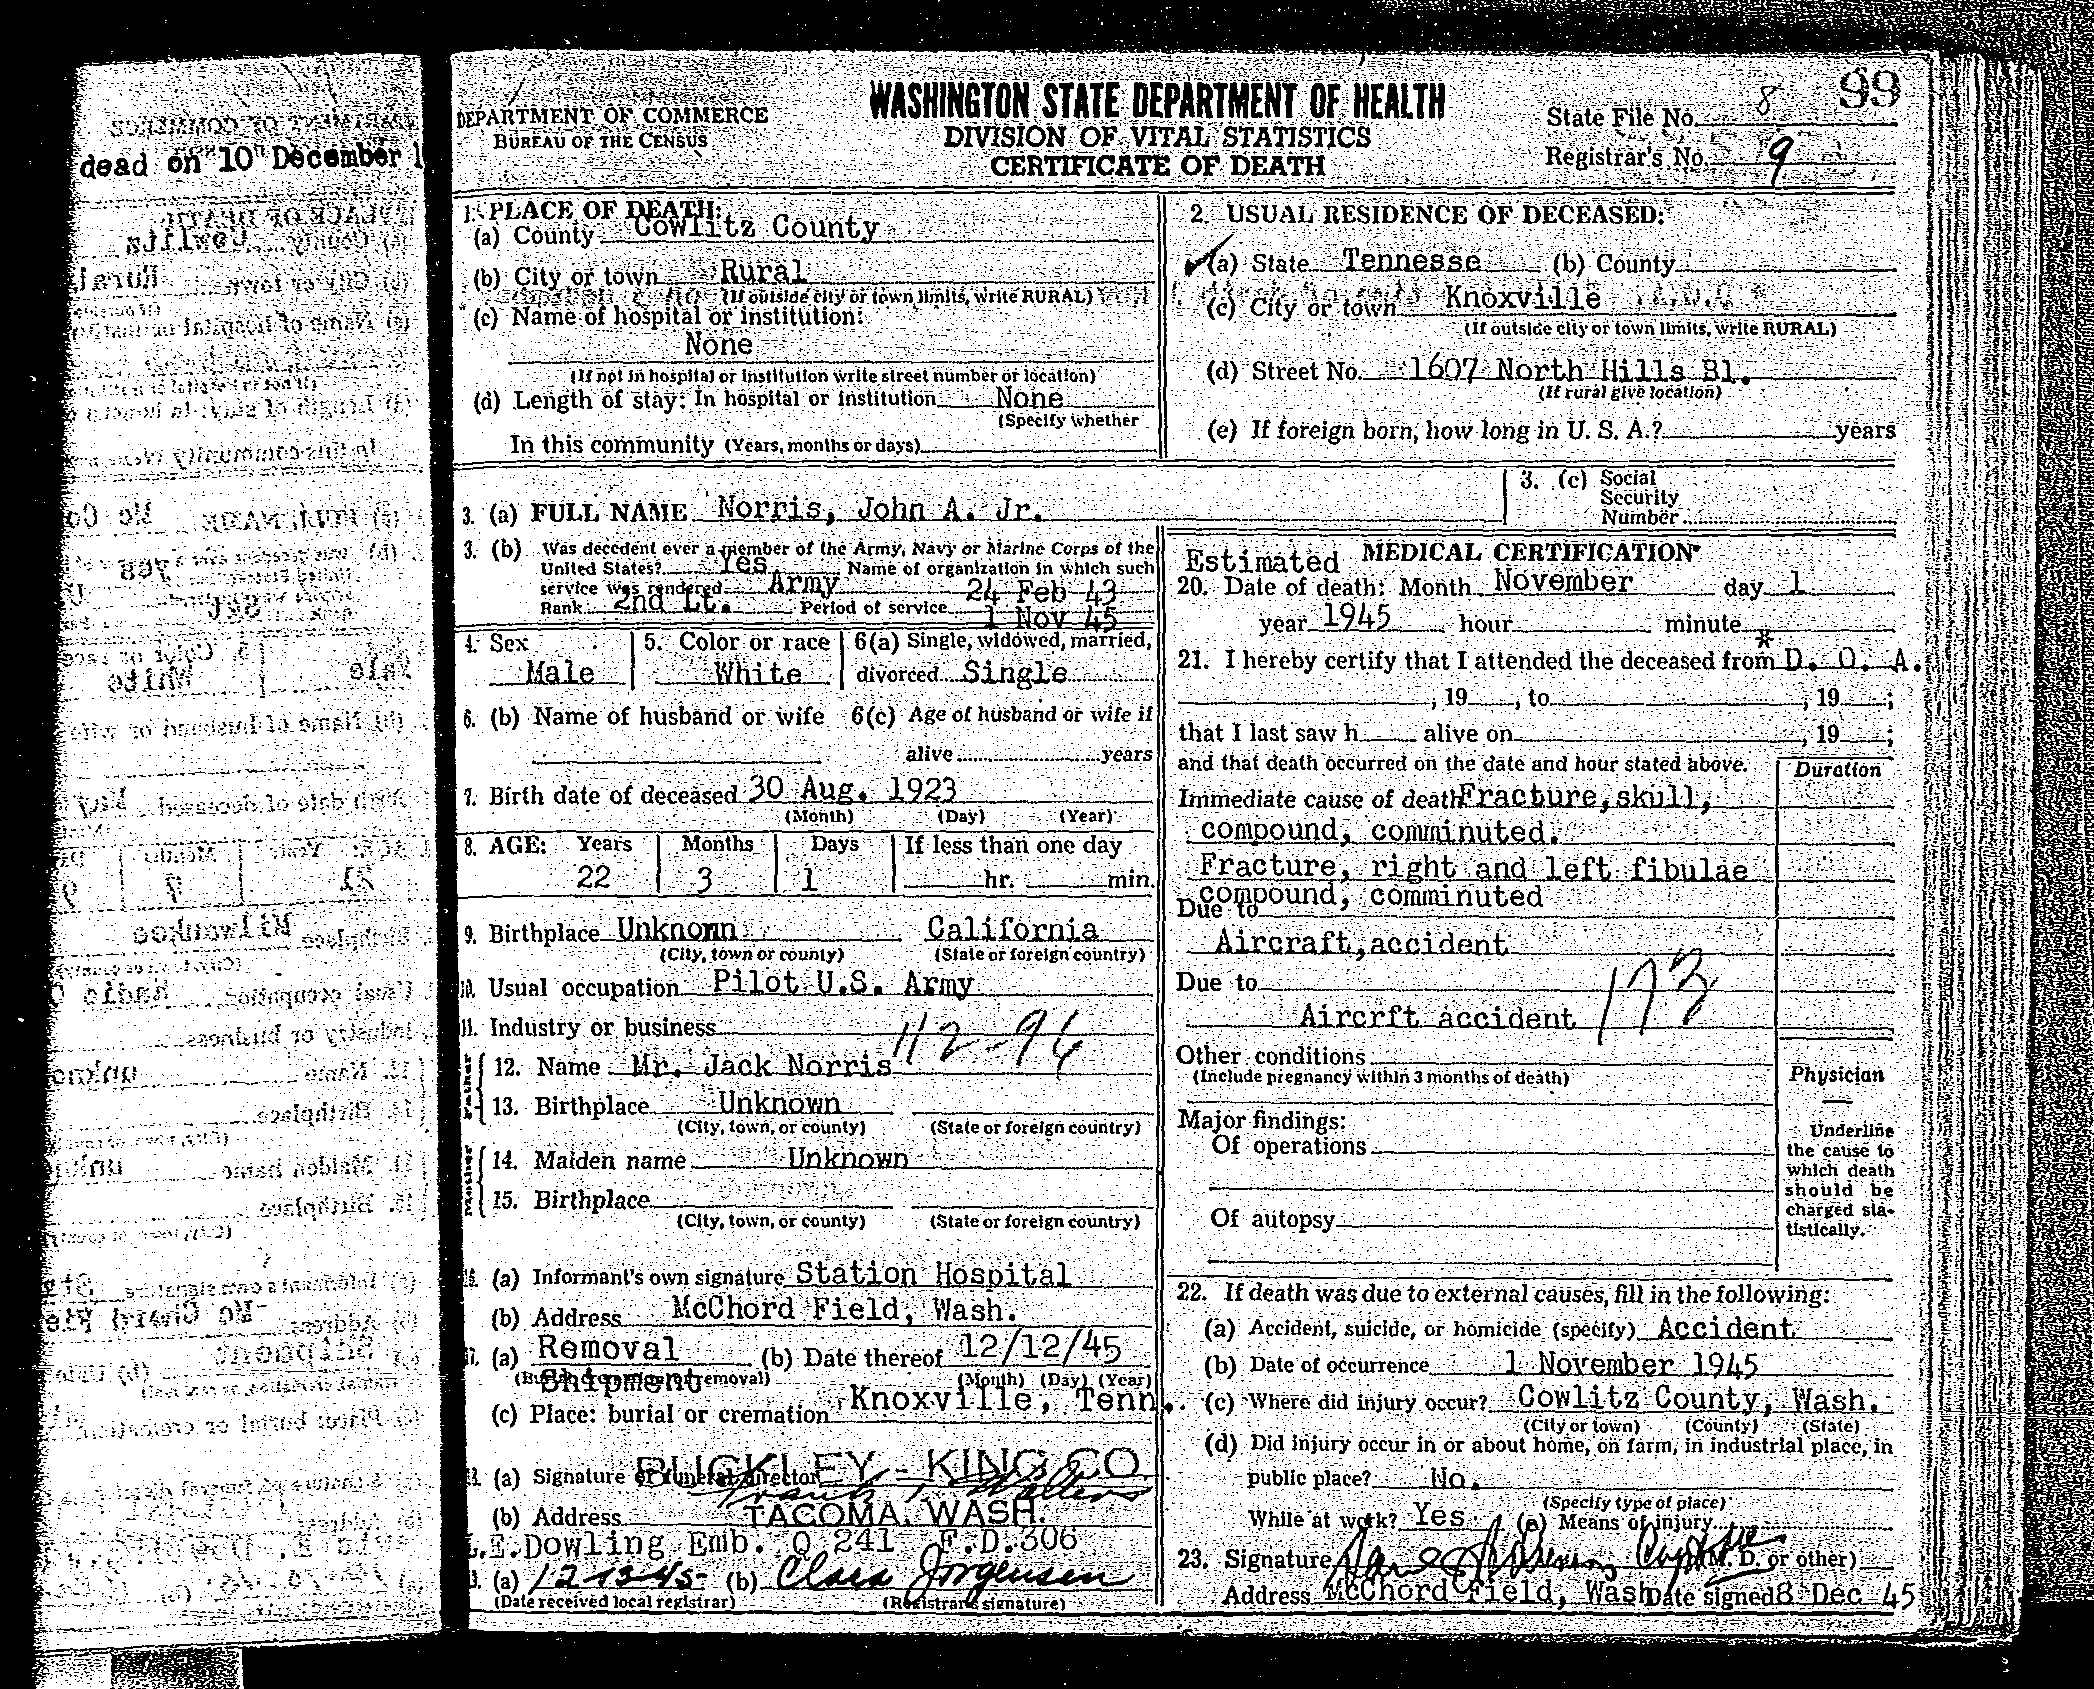 dead on "10" December 1
99
DEPARTMENT OF COMMERCE
BUREAU OF THE CENSUS
WASHINGTON STATE DEPARTMENT OF HEALTH
DIVISION OF VITAL STATISTICS
CERTIFICATE OF DEATH
State File No. 8
Registrar's No. 9
1. PLACE OF DEATH:
(a) County Cowlitz County
(b) City or town Rural
(If outside city or town limits, write RURAL)
(c) Name of hospital or institution:
None
(If not in hospital or institution write street number or location)
(d) Length of stay: In hospital or institution None
(Specify whether
In this community (Years, months or days)
2. USUAL RESIDENCE OF DECEASED:
(a) State Tennesse (b) County
(c) City or town Knoxville
(If outside city or town limits, write RURAL)
(d) Street No. 1607 North Hills Bl.
(If rural give location)
(e) If foreign born, how long in U. S. A.? years
3. (a) FULL NAME Norris, John A. Jr.
3. (c) Social
Security
Number
3. (b) Was decedent ever a member of the Army, Navy or Marine Corps of the
United States? Yes Name of organization in which such
service was rendered Army 24 Feb 43
Rank 2nd Lt. Period of service
1 Nov 45
4. Sex 5. Color or race 6(a) Single, widowed, married,
Male White divorced Single
6. (b) Name of husband or wife 6(c) Age of husband or wife if
alive years
7. Birth date of deceased 30 Aug. 1923
(Month) (Day) (Year)
8. AGE: Years Months Days If less than one day
22 3 1 hr. min.
9. Birthplace Unknown California
(City, town or county) (State or foreign country)
10. Usual occupation Pilot U.S. Army
11. Industry or business 112-96
Father
12. Name Mr. Jack Norris
13. Birthplace Unknown
(City, town, or county) (State or foreign country)
Mother
14. Maiden name Unknown
15. Birthplace
(City, town, or county) (State or foreign country)
16. (a) Informant's own signature Station Hospital
(b) Address McChord Field, Wash.
17. (a) Removal (b) Date thereof 12/12/45
Shipment (Month) (Day) (Year)
(c) Place: burial or cremation Knoxville, Tenn.
(a) Signature of funeral director BUCKLEY - KING CO
(b) Address TACOMA, WASH.
L.E. Dowling Emb. Q 241 F.D.306
(a) 12-13-45 (b) Clara Jorgensen
(Date received local registrar) (Registrar's signature)
Estimated MEDICAL CERTIFICATION
20. Date of death: Month November day 1
year 1945 hour minute
*
21. I hereby certify that I attended the deceased from D. O. A.
, 19 , to , 19 ;
that I last saw h alive on , 19 ;
and that death occurred on the date and hour stated above. Duration
Immediate cause of death Fracture, skull,
compound, comminuted.
Fracture, right and left fibulae
compound, comminuted
Due to
Aircraft, accident
Due to
Aircrft accident 173
Other conditions
(Include pregnancy within 3 months of death)
Major findings:
Of operations
Of autopsy
Physician
Underline
the cause to
which death
should be
charged sta-
tistically.
22. If death was due to external causes, fill in the following:
(a) Accident, suicide, or homicide (specify) Accident
(b) Date of occurrence 1 November 1945
(c) Where did injury occur? Cowlitz County, Wash.
(City or town) (County) (State)
(d) Did injury occur in or about home, on farm, in industrial place, in
public place? No.
(Specify type of place)
While at work? Yes (e) Means of injury
23. Signature (M. D. or other)
Address McChord Field, Wash Date signed 8 Dec 45